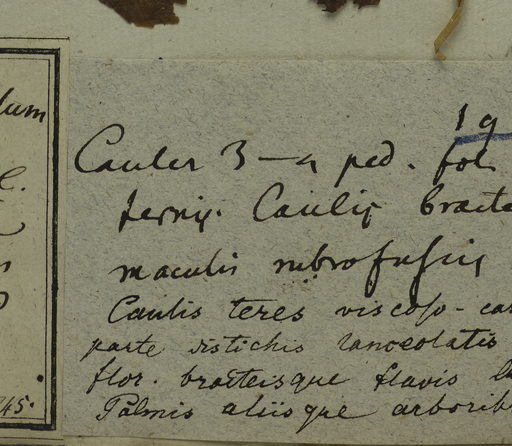 lum
19
Cauler 3-4 ped. fol
ternis. Caulis bracte
maculis rubrofuscis
Caulis teres viscoso-car
parte distichis lanceolatis
flor. bracteisque flavis la
Palmis aliisque arborib
845.